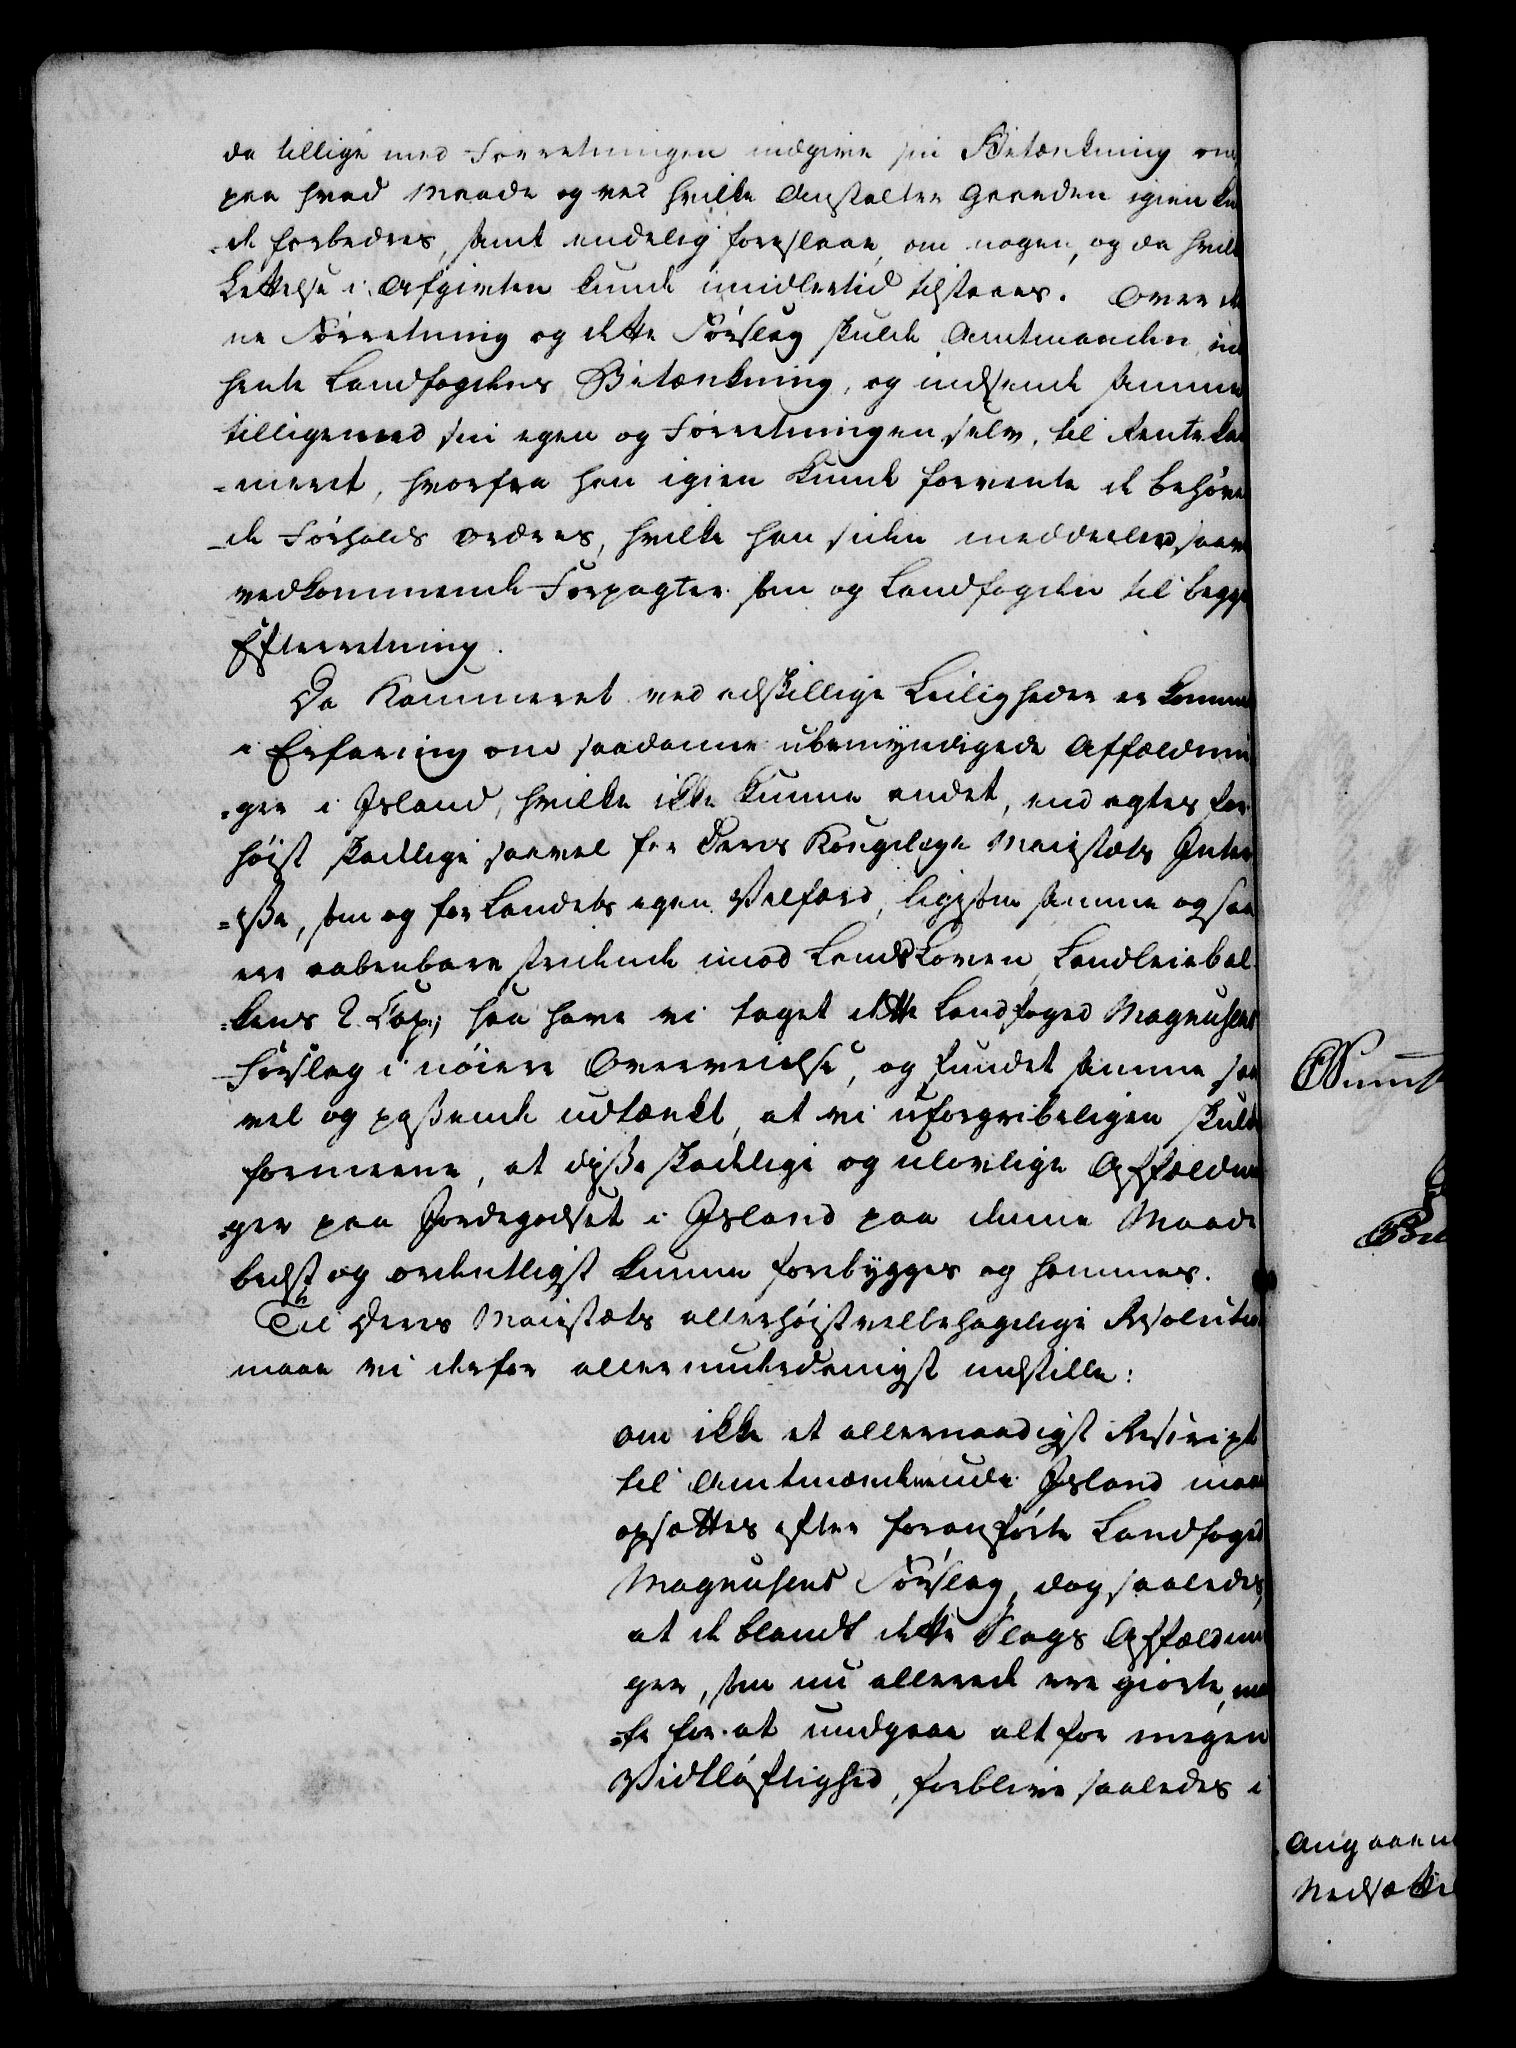 da tillige med Forretningen indgive sin Betænkning om,
paa hvad Maade og ved hvilke Anstalter Gaarden igien kun
-de forbedres, samt endelig foreslaae, om nogen, og da hvilk
Lettelse i Afgivten kunde imidlertid tilstaaes. Over den
ne Forretning og dette Forslag skulde Amtmanden ind
hente Landfogdens Betænkning, og indsende samme
tilligemed sin egen og Forretningen selv, til Renteka
=meret, hvorfra han igien kunde forvente de behøve
-de Forholds Ordres, hvilke han siden meddeeler saav
vedkommende Forpagter som og Landfogden til begge
Efterretning.
Da Kammeret ved adskillige Leiligheder er komme
i Erfaring om saadanne ubemyndigede Affældnin
=ger i Island, hvilke ikke kunne andet, end agtes for
høist skadelige saavel for Deres Kongelige Maiestæts Inter
=esse, som og for Landets egen Velfærd, ligesom samme ogsaa
ere aabenbare stridende imod Lands Loven Landleiebal
=kens 2 Cap; saa have vi taget dette Landfoged Magnusens
Forslag i nøiere Overveielse, og fundet samme saa
vel og passende udtænkt, at vi uforgribeligen skulde
formeene, at disse skadelige og ulovlige Affældnin
=ger paa Jordegodset i Island paa denne Maade
bedst og ordentligst kunne forebygges og hemmes.
Til Deres Maiestæts allerhøistvelbehagelige Resolution
maae vi derfor allerunderdanigst indstille:
om ikke et allernaadigst Rescript
til Amtmændene udi Island maae
opsættes efter foranførte Landfoged
Magnusens Forslag, dog saaledes,
at de blandt dette Slags Affældnin
ger, som nu allerede ere giorte, maa
=e for at undgaae alt for megen
Vidtløftighed, forblive saaledes i
Angaaen
Nedsætte